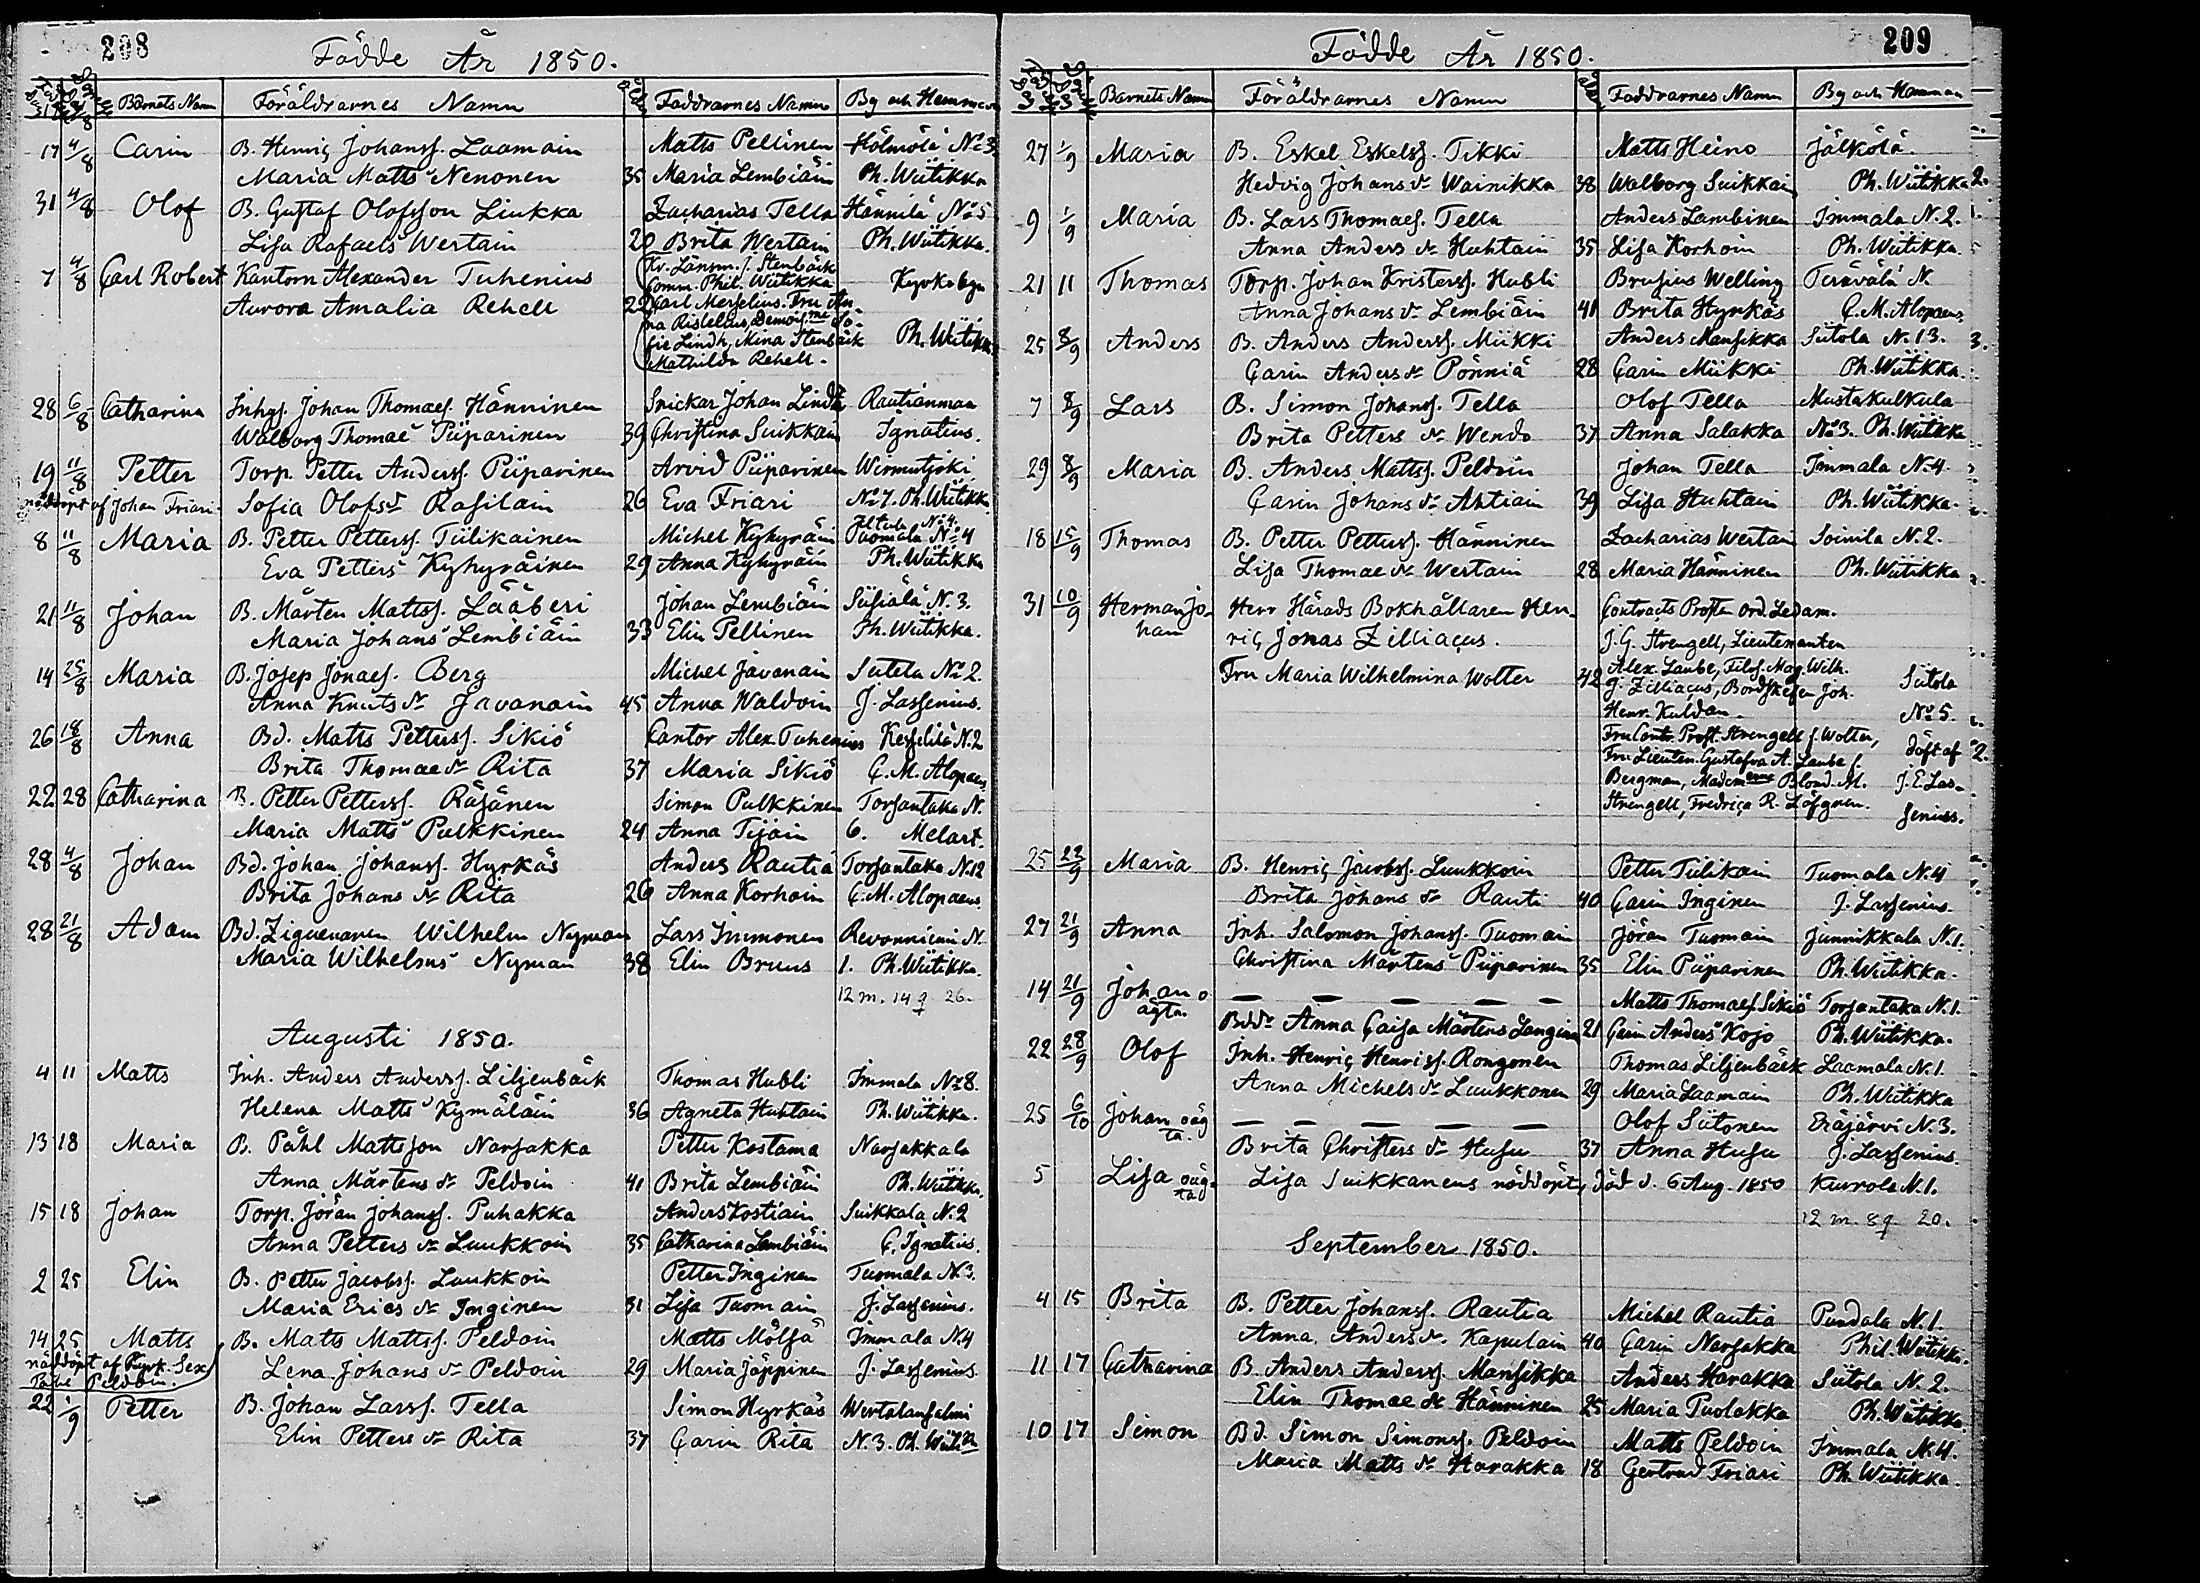 208
Födde År 1850.
Barnets Namn Föräldrarnes Namn Faddrarnes Namn By och Hemman
17 4/8 Carin B. Henriç Johansſ. Laamain Matts Pellinen Hölmölä No 3.
Maria Matts Nenonen 35 Maria Lembiäin Ph. Wiitikka
31 4/8 Olof B. Gustaf Olofsson Liukka Zacharias Tella Hännilä No 5
Lisa Rafaels Wertain 20 Brita Wertain Ph. Wiitikka.
7 4/8 Carl Robert Kantorn Alexander Tuhenius Kr. Länsm. J. Stenbäck
Comm. Phil. Wiitikka Kyrkobyn
Aurora Amalia Rehell 22 Carl Merselius. Fru An-
na Riselius, Demois.me So-
fie Lindh, Mina Stenbäck Ph. Wiitikka
Mathilda Rehell.
28 6/8 Catharina Inhys. Johan Thomaeſ. Hänninen Snickar Johan Lindh Rautianmaa
Walborg Thomae Piiparinen 39 Christina Suikkain Ignatius.
19 11/8 Petter Torp. Petter Andersſ. Piiparinen Arvid Piiparinen Wirmutjoki
nöddöpt af Johan Friari. Sofia Olofsdr Rasilain 26 Eva Friari No 7. Ph. Wiitikka
8 11/8 Maria B. Petter Pettersſ. Tiilikainen Michel Kyhyräin Tuomala No 4
Eva Petters Kyhyräinen 29 Anna Kyhyräin Ph. Wiitikka
21 11/8 Johan B. Mårten Mattsſ. Lääberi Johan Lembiäin Siisiälä N. 3.
Maria Johans Lembiäin 33 Elin Pellinen Ph. Wiitikka.
14 25/8 Maria B. Josep Jonaeſ. Berg Michel Javanain Sutela No 2.
Anna Knuts dr Javanain 45 Anna Waldoin J. Lassenius.
26 18/8 Anna Bd. Matts Pettersſ. Sikiö Cantor Alex Tuhenius Kesselilä N. 2
Brita Thomae dr Rita 37 Maria Sikiö C. M. Alopaeus
22 28 Catharina B. Petter Pettersſ. Räsänen Simon Pulkkinen Torsantaka N.
Maria Matts Pulkkinen 24 Anna Tijäin 6. Melart.
28 4/8 Johan Bd. Johan Johansſ. Hyrkäs Anders Rautia Torsantaka N. 12
Brita Johans dr Rita 26 Anna Korhoin C. M. Alopaeus.
28 21/8 Adam Bd. Ziguenaren Wilhelm Nyman Lars Immonen Revonniemi N.
Maria Wilhelms Nyman 38 Elin Bruus 1. Ph. Wiitikka.
12 m. 14 q 26.
Augusti 1850.
4 11 Matts Inh. Anders Andersſ. Liljenbäck Thomas Hubli Immala No 8.
Helena Matts Kymäläin 36 Agneta Huhtain Ph. Wiitikka.
13 18 Maria B. Påhl Mattsson Narsakka Petter Kostama Narsakkala
Anna Mårtens dr Peldoin 41 Brita Lembiäin Ph. Wiitikka.
15 18 Johan Torp. Jöran Johansſ. Puhakka Anders Kostiain Suikkala N. 2
Anna Petters dr Luukkoin 35 Catharina Lembiäin C. Ignatius.
2 25 Elin B. Petter Jacobsſ. Luukkoin Petter Inginen Tuomala N. 3.
Maria Erics dr Inginen 31 Lisa Tuomain J. Lassenius.
14 25 Matts B. Matts Mattsſ. Peldoin Matts Mölsä Immala N. 4
nöddöpt af Kyrk. Sex. Lena Johans dr Peldoin 29 Maria Jäppinen J. Lassenius
Påhl Peldoin.
22 1/9 Petter B. Johan Larsſ. Tella Simon Hyrkäs Wertalansalmi
Elin Petters dr Rita 37 Carin Rita N. 3. Ph. Wiit.
209
Födde År 1850.
Barnets Namn Föräldrarnes Namn Faddrarnes Namn By och Hemman
27 1/9 Maria B. Eskel Eskelsſ. Tikki Matts Heino Jälkölä.
Hedvig Johans dr Wainikka 38 Walborg Suikkain Ph. Wiitikka
9 1/9 Maria B. Lars Thomaeſ. Tella Anders Lambinen Immala N. 2.
Anna Anders dr Huhtain 35 Lisa Korhoin Ph. Wiitikka.
21 11 Thomas Torp. Johan Kristersſ. Hubli Brusius Welling Terävälä N.
Anna Johans dr Lembiäin 41 Brita Hyrkäs C. M. Alopaeus.
25 8/9 Anders B. Anders Andersſ. Miikki Anders Mansikka Siitola N. 13.
Carin Anders dr Pönniä 28 Carin Miikki Ph. Wiitikka.
7 8/9 Lars B. Simon Johansſ. Tella Olof Tella Mustakulkula
Brita Petters dr Wendo 37 Anna Salakka No 3. Ph. Wiitikka
29 8/9 Maria B. Anders Mattsſ. Peldoin Johan Tella Immala N. 4.
Carin Johans dr Ahtiain 39 Lisa Huhtain Ph. Wiitikka.
18 15/9 Thomas B. Petter Pettersſ. Hänninen Zacharias Wertain Soinila N. 2.
Lisa Thomae dr Wertain 28 Maria Hänninen Ph. Wiitikka
31 10/9 Herman Jo- Herr Härads Bokhållaren Hen- Contracts Prosten ord. Ledam.
han riç Jonas Zilliaçus. J. G. Strengell, Lieutenanten
Fru Maria Wilhelmina Wolter 42 Alex. Laube, Filos. Mag. Wilh.
J. Zilliaçus, Bordskefen Joh. Siitola
Henr. Kuldan. No 5.
Fru Contr. Prost. Strengell f. Wolter, döpt af
Fru Lieuten. Gustafva A. Laube f.
Bergman, Mademerne Blond. M. J. E. Las-
Strengell, Fredriça R. Löfgren. senius.
25 22/9 Maria B. Henriç Jacobsſ. Luukkoin Petter Tiilikain Tuomala N. 4
Brita Johans dr Rauti 40 Carin Inginen J. Lassenius.
27 21/9 Anna Inh. Salomon Johansſ. Tuomain Jöran Tuomain Junnikkala N. 1.
Christina Mårtens Piiparinen 35 Elin Piiparinen Ph. Wiitikka.
14 21/9 Johan o — — — — — Matts Thomaeſ. Sikiö Torsantaka N. 1.
ägta. Bddr Anna Caisa Mårtens Langinen 21 Carin Anders Kojo Ph. Wiitikka.
22 28/9 Olof Inh. Henriç Henrisſ. Rongonen Thomas Liljenbäck Laamala N. 1.
Anna Michels dr Luukkonen 29 Maria Laamain Ph. Wiitikka
25 6/10 Johan oäg — — — — — Olof Siitonen Eräjärvi N. 3.
ta. Brita Christers dr Husu 37 Anna Husu J. Lassenius.
5 Lisa oäg- Lisa Suikkanens nöddöpt, död d. 6 Aug. 1850 Kurrola N. 1.
ta
12 m. 8 q. 20.
September 1850.
4 15 Brita B. Petter Johansſ. Rautia Michel Rautia Pundala N. 1.
Anna Anders dr. Kapulain 40 Carin Narsakka Phil. Wiitikka.
11 17 Catharina B. Anders Andersſ. Mansikka Anders Harakka Siitola N. 2.
Elin Thomae dr Hänninen 25 Maria Puolakka Ph. Wiitikka.
10 17 Simon Bd. Simon Simonsſ. Peldoin Matts Peldoin Immala N. 4.
Maria Matts dr Harakka 18 Gertrud Friari Ph. Wiitikka.